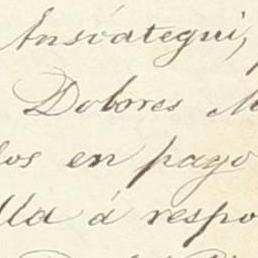 Ansoátegui,
Dolores M
los en pago
lla á respo